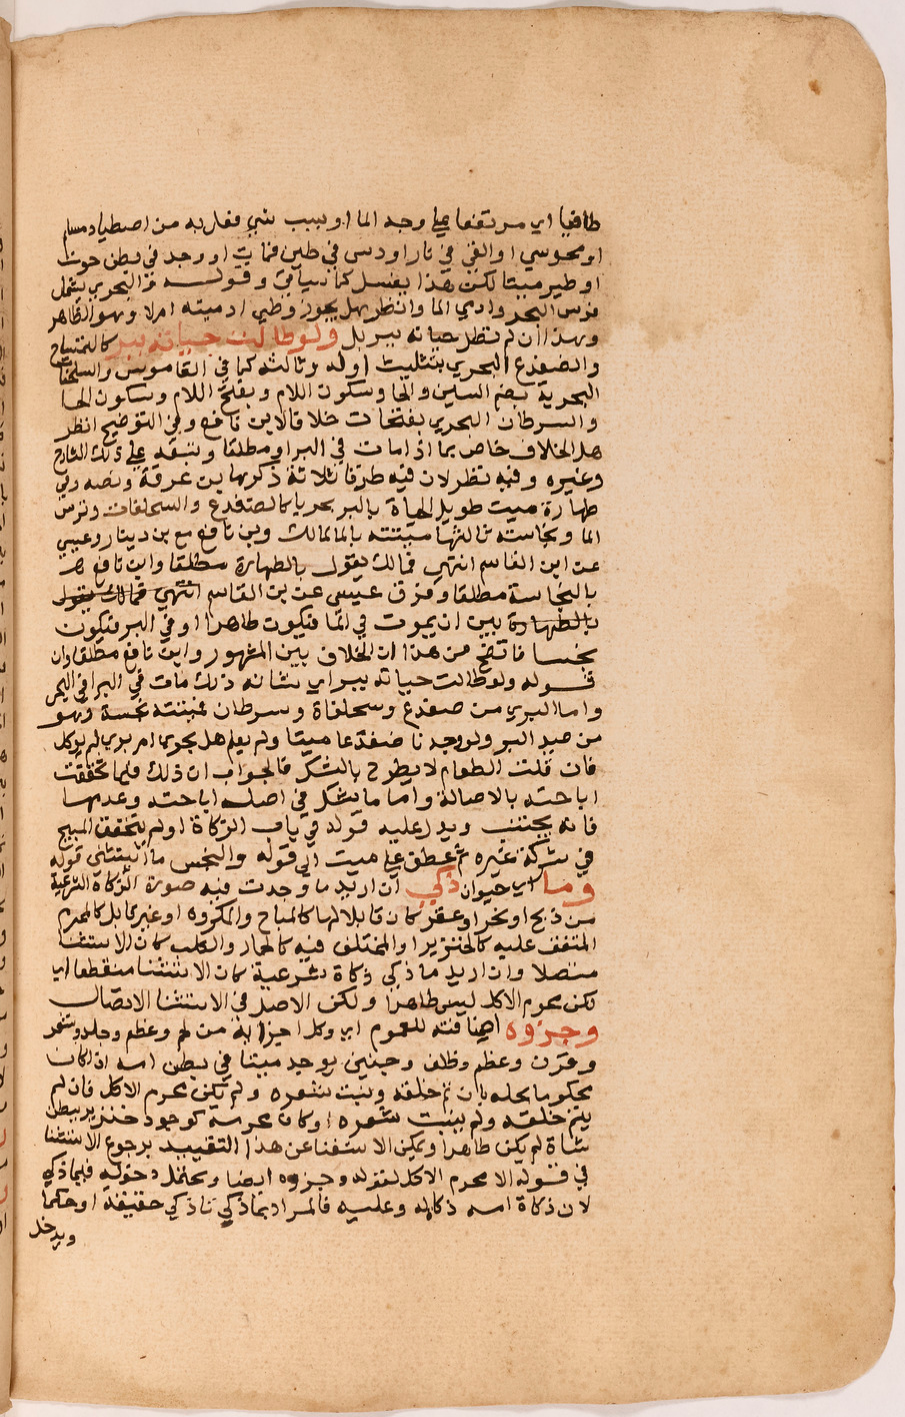 طافيا اي مرتفعا على وجه الما او بسبب شي فعل به من اصطياد مسلم
او مجوسي او القي في نار او دس في طين فمات او وجد في بطن حوت
او طير ميتا لكن هذا يغسل كما سياتي وقوله والبحري يشمل
فرس البحر وادمي الما وانظر هل يجوز وطي ادميته ام لا وهو الظاهر
وهذا ان لم تطل حياته ببر بل ولو طالت حياته ببر كالتمساح
والضفدع البحري بتثليث اوله وثالثه كما في القاموس والسلحفاة
البحرية بضم السين والحا وسكون اللام وبفتح اللام وسكون الحا
والسرطان البحري بفتحات خلافا لابن نافع وفي التوضيح انظر
هل الخلاف خاص بما اذا مات في البر او مطلقا وتبعه على ذلك الشارح
وغيره وفيه نظر لان فيه طرقا ثلاثة ذكرها ابن عرفة ونصه وفي
طهارة ميت طويل الحياة بالبر بحريا كالضفدع والسحلفات وترس
الما ونجاسته ثالثها ميتته بالما لمالك وبن نافع مع بن دينار وعيسي
عن ابن القاسم انتهي فمالك يقول بالطهارة مطلقا وابن نافع
بالنجاسة مطلقا وفرق عيسي عن بن القاسم انتهي فمالك يقول
بالطهارة بين ان يموت في الما فيكون طاهرا او في البر فيكون
نجسا فاتضح من هذا ان الخلاف بين المشهور وابن نافع مطلقا وان
قوله ولو طالت حياته ببر اي شانه ذلك مات في البر او في البحر
واما البري من ضفدع وسحلفاة وسرطان فميتته نجسة وهو
من صيد البر ولو وجدنا ضفدعا ميتا ولم يعلم هل بحري ام بري لم يوكل
فان قلت الطعام لا يطرح بالشك فالجواب ان ذلك فيما تحققت
اباحته بالاصالة واما ما يشك في اصله اباحته وعدمها
فانه يجتنب ويدل عليه قوله في باب الزكاة او لم يتحقق المبيح
في شركة غيره ثم عطف على ميت الي قوله والنجس ما استثني قوله
وما اي حيوان ذكي ان اريد ما وجدت فيه صورة الزكاة الشرعية
من ذبح او نحر او عقر كان قابلا لها كالمباح والمكروه او غير قابل كالمحرم
المتفق عليه كالخنزير او المختلف فيه كالحمار والكلب كان الاستثنا
متصلا وان اريد ما ذكي ذكاة شرعية كان الاستثنا منقطعا اي
لكن محرم الاكل ليس طاهرا ولكن الاصل في الاستثنا الاتصال
وجزوه اضافته للعموم اي وكل اجزايه من لحم وعظم وجلد وشعر
وقرن وعظم وظلف وجنين يوجد ميتا في بطن امه اذا كان
محكوما بحله بان تم خلقه ونبت شعره ولم يكن محرم الاكل فان لم
يتم خلقه ولم ينبت شعره او كان محرمه كوجود خنزير ببطن
شاة لم يكن طاهرا ويمكن الاستغنا عن هذا التقييد برجوع الاستثنا
في قوله الا محرم الاكل لقوله وجزوه ايضا ويحتمل دخوله فيما ذكي
لان ذكاة امه ذكاة له وعليه فالمراد بما ذكي ما ذكي حقيقة او حكما
ويدخل